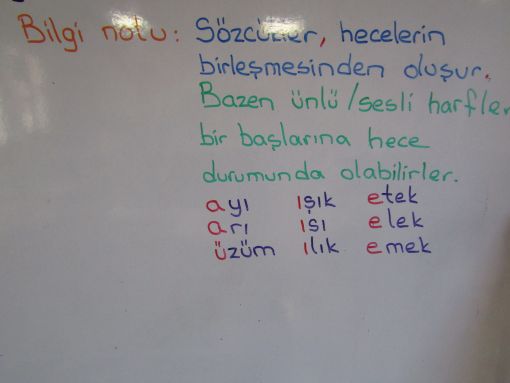 Bilgi notu: Sözcükler, hecelerin
birleşmesinden oluşur.
Bazen ünlü/sesli harfler
bir başlarına hece
durumunda olabilirler.
ayı ışık etek
arı ısı elek
üzüm ılık emek